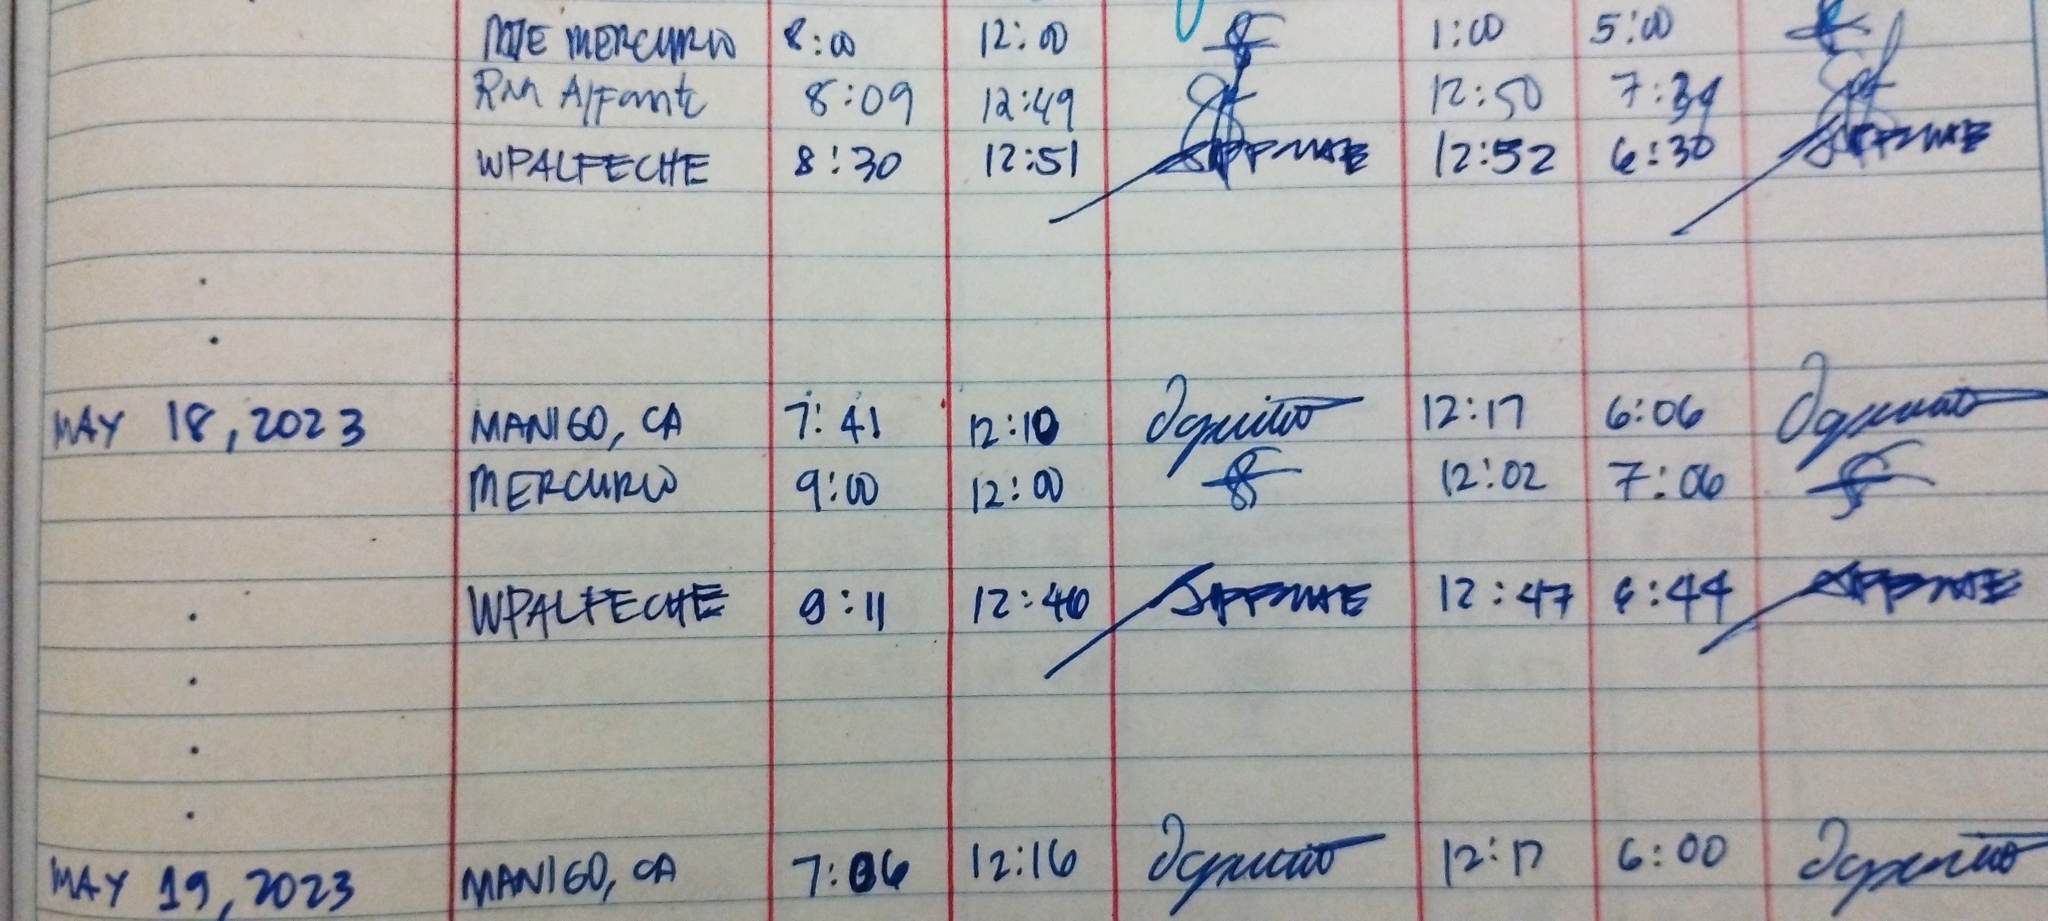 MERCURIO 8:00 12:00 1:00 5:00
RM Alfante 8:09 12:49 12:50 7:39
WPALFECHE 8:30 12:51 12:52 6:30
MAY 18, 2023 MANIGO, CA 7:41 12:10 12:17 6:06
MERCURIO 9:00 12:00 12:02 7:06
WPALFECHE 9:11 12:46 12:47 6:44
MAY 19, 2023 MANIGO, CA 7:06 12:16 12:17 6:00